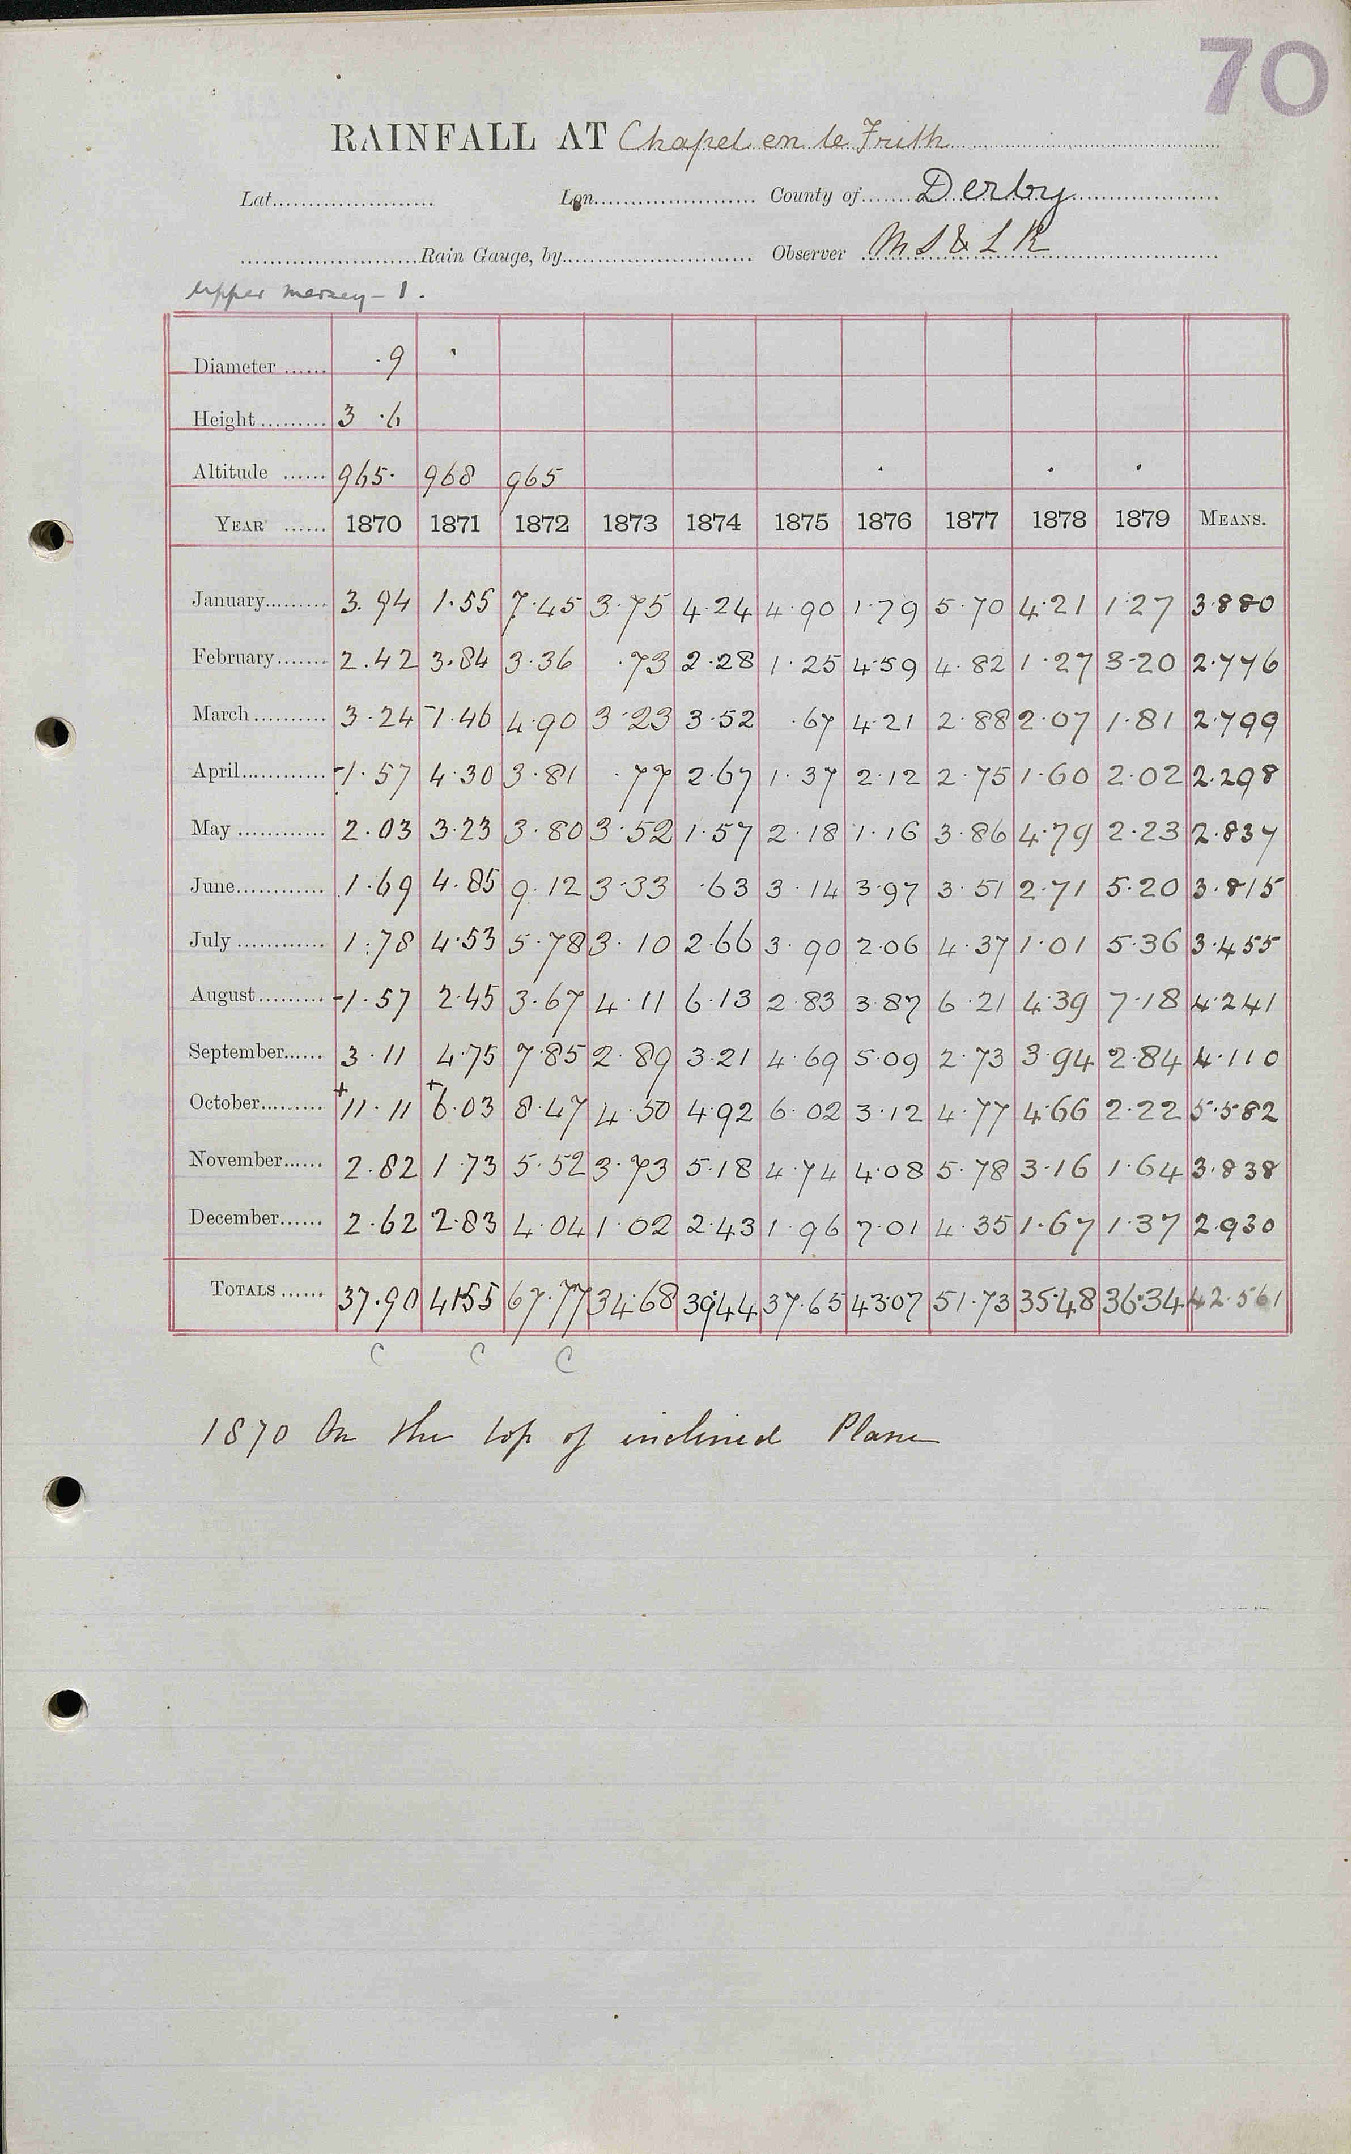 70
RAINFALL AT Chapel en le Frith
Lat. Lon. County of Derby
Rain Gauge, by Observer M S & L R
Upper Mersey - 1.
Diameter ·9
Height 3 ·6
Altitude 965· 968 965
YEAR 1870 1871 1872 1873 1874 1875 1876 1877 1878 1879 MEANS.
January 3.94 1.55 7.45 3.75 4.24 4.90 1.79 5.70 4.21 1.27 3.880
February 2.42 3.84 3.36 .73 2.28 1.25 4.59 4.82 1.27 3.20 2.776
March 3.24 -1.46 4.90 3.23 3.52 .67 4.21 2.88 2.07 1.81 2.799
April -1.57 4.30 3.81 .77 2.67 1.37 2.12 2.75 1.60 2.02 2.298
May 2.03 3.23 3.80 3.52 1.57 2.18 1.16 3.86 4.79 2.23 2.837
June 1.69 4.85 9.12 3.33 .63 3.14 3.97 3.51 2.71 5.20 3.815
July 1.78 4.53 5.78 3.10 2.66 3.90 2.06 4.37 1.01 5.36 3.455
August -1.57 2.45 3.67 4.11 6.13 2.83 3.87 6.21 4.39 7.18 4.241
September 3.11 4.75 7.85 2.89 3.21 4.69 5.09 2.73 3.94 2.84 4.110
October +11.11 +6.03 8.47 4.50 4.92 6.02 3.12 4.77 4.66 2.22 5.582
November 2.82 1.73 5.52 3.73 5.18 4.74 4.08 5.78 3.16 1.64 3.838
December 2.62 2.83 4.04 1.02 2.43 1.96 7.01 4.35 1.67 1.37 2.930
TOTALS 37.90 41.55 67.77 34.68 39.44 37.65 43.07 51.73 35.48 36.34 42.561
C C C
1870 On the top of inclined Plane